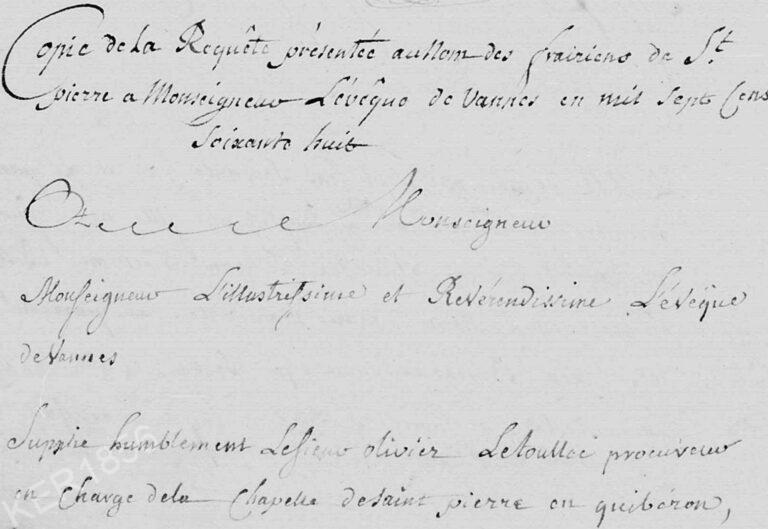 Copie de La Requête présentée au Nom des frairiens de St.
pierre a Monseigneur Lévêque de Vannes en mil Sept Cens
Soixante huit
A Monseigneur
Monseigneur L'illustrissime et Révérendissime L'évêque
de Vannes
Supplie humblement Le Sieur olivier Le toullec procureur
en Charge de la Chapelle de Saint pierre en quibéron,
KER1836